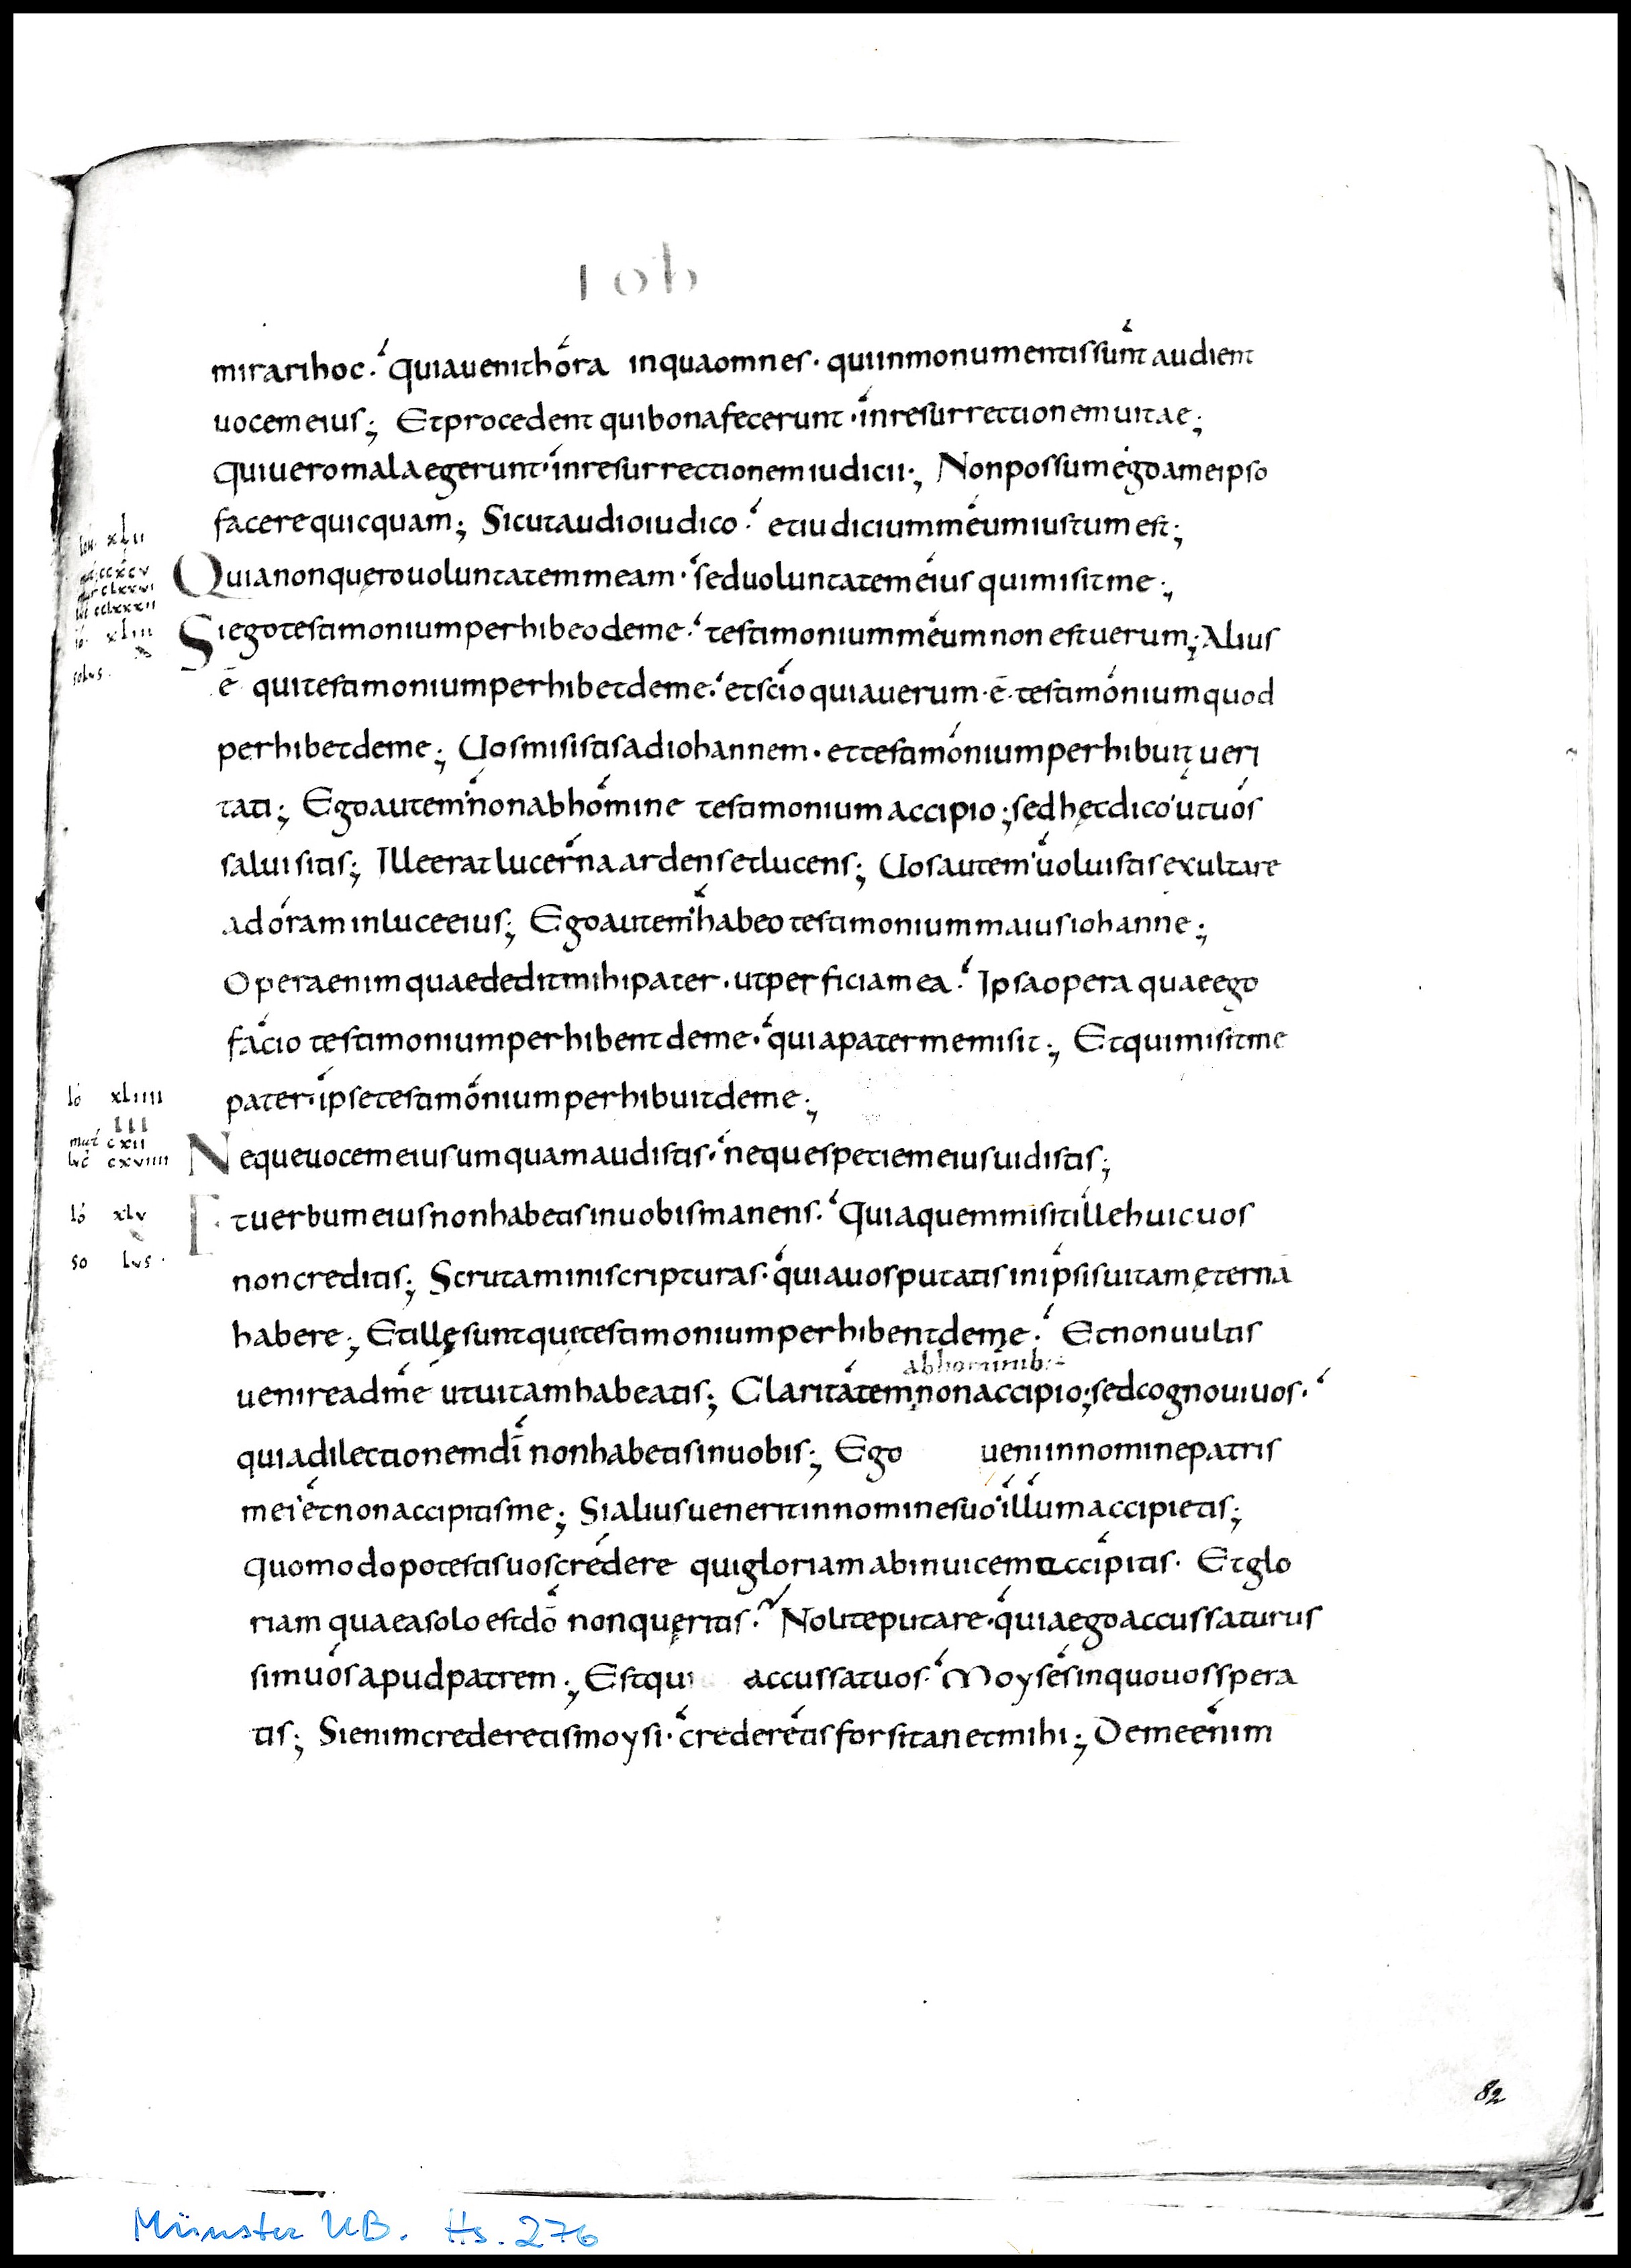 ioh
mirari hoc. quia uenit hora in qua omnes. qui in monumentis sunt audient
uocem eius; Et procedent qui bona fecerunt. in resurrectionem uitae;
Qui uero mala egerunt. in resurrectionem iudicii; Non possum ego a me ipso
facere quicquam; Sicut audio iudico. et iudicium meum iustum est;
ioh xlii
Quia non quęro uoluntatem meam. sed uoluntatem eius qui misit me;
io xliii
Si ego testimonium perhibeo de me. testimonium meum non est uerum; Alius
solus.
ē qui testimonium perhibet de me. et scio quia uerum. ē. testimonium quod
perhibet de me; Uos misistis ad iohannem. et testimonium perhibuit ueri
tati; Ego autem non ab homine testimonium accipio; sed hęc dico ut uos
salui sitis; Ille erat lucerna ardens et lucens; Uos autem uoluistis exultare
ad oram in luce eius; Ego autem habeo testimonium maius iohanne;
Opera enim quae dedit mihi pater. ut perficiam ea. Ipsa opera quae ego
facio testimonium perhibent de me. quia pater me misit; Et qui misit me
io xliiii
pater. ipse testimonium perhibuit de me;
III
mat cxii
luc cxviiii
Neque uocem eius umquam audistis. neque speciem eius uidistis;
io xlv
Et uerbum eius non habetis in uobis manens. Quia quem misit ille huic uos
so lus.
non creditis; Scrutamini scripturas. quia uos putatis in ipsis uitam ęternā
habere; Et illę sunt quę testimonium perhibent de me. Et non uultis
ab hominib;
uenire ad me ut uitam habeatis; Claritatem non accipio; sed cognoui uos.
quia dilectionem dī non habetis in uobis; Ego ueni in nomine patris
mei et non accipitis me; Si alius uenerit in nomine suo illum accipietis;
Quomodo potestis uos credere qui gloriam ab inuicem accipitis. Et glo
riam quae a solo est dō non quęritis. Nolite putare. quia ego accussaturus
sim uos apud patrem; Est qui accussat uos. Moyses in quo uos spera
tis; Si enim crederetis moysi. crederetis forsitan et mihi; De me enim
82
Münster UB. Hs. 276